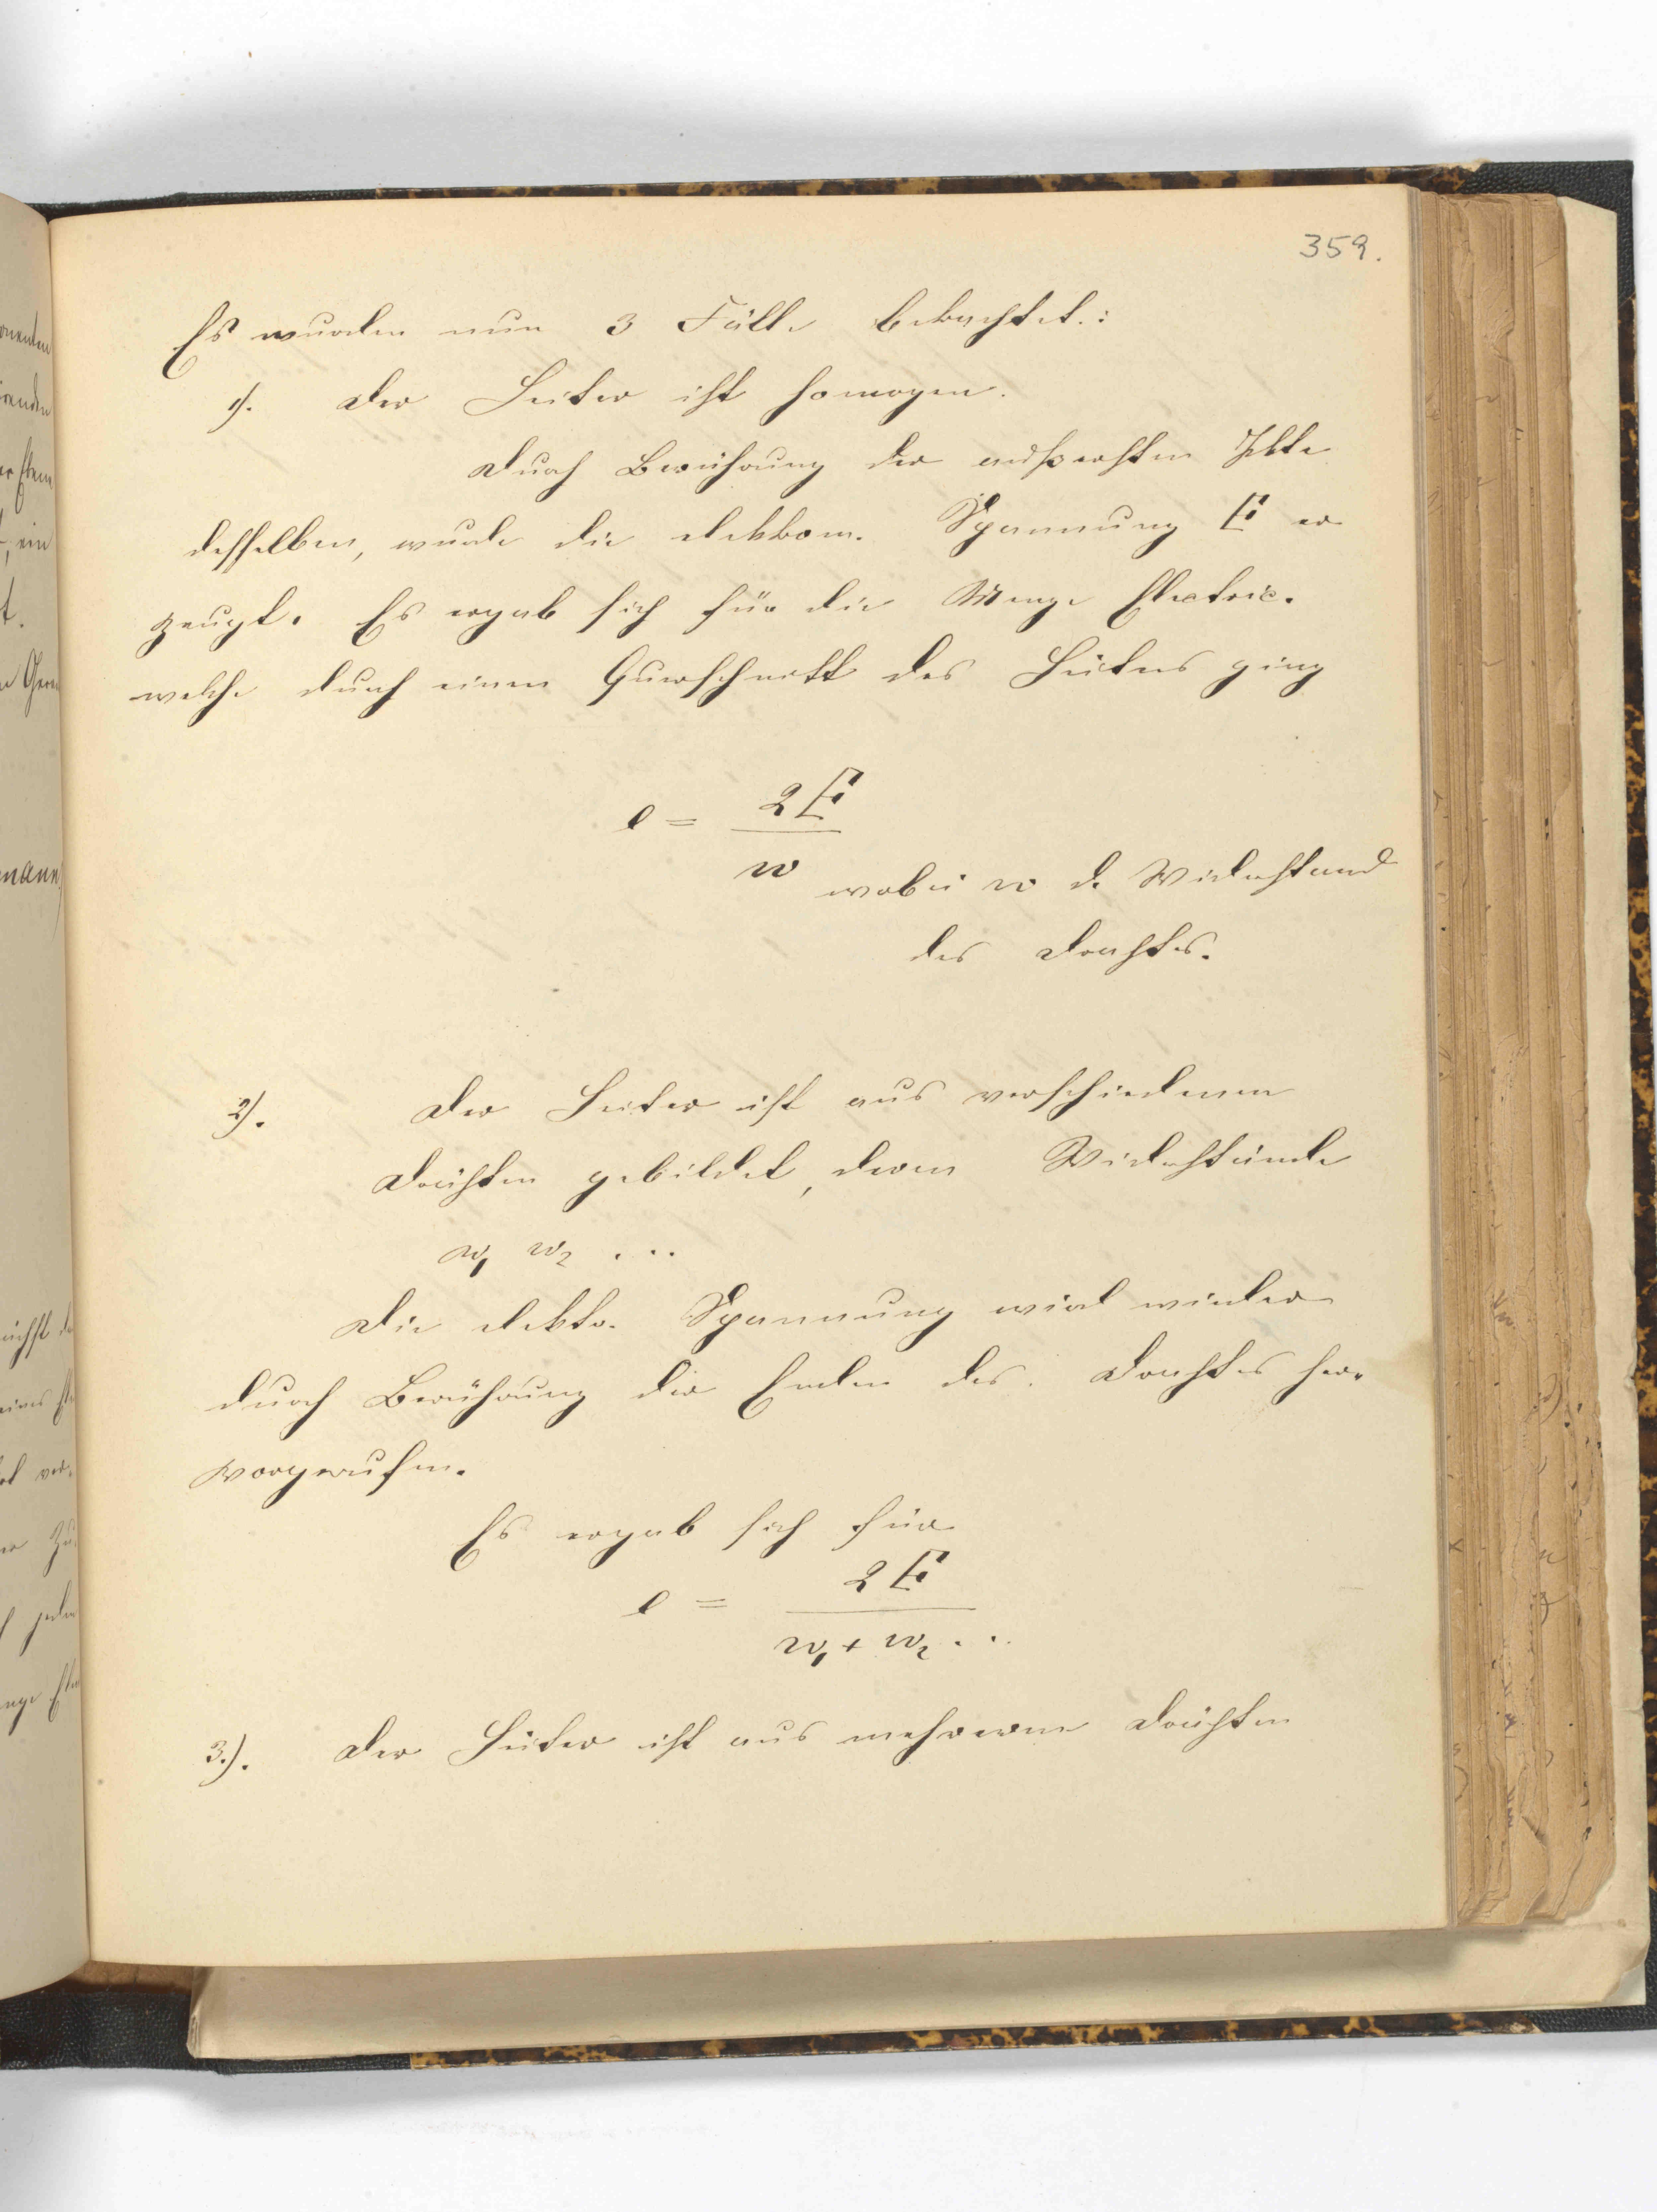 359.
Es wurden nun 3 Fälle betrachtet.:
1). Der Leiter ist homogen.
Durch Berührung der äußersten
desselben, wurde die elektrom. Spannung E er
zeugt. Es ergab sich für die Menge Electric.
welche durch einen Querschnitt des Leiters ging
e = 2E / w
wobei w d. Widerstand
des Drahtes.
2). Der Leiter ist aus verschiedenen
Drähten gebildet, deren Widerstände
w1 w2 ...
Die elektr. Spannung wird wieder
durch Berührung der Enden des Drahtes her-
vorgerufen.
Es ergab sich für
e = 2E / w1 + w2 ...
3.). Der Leiter ist aus mehreren Drähten